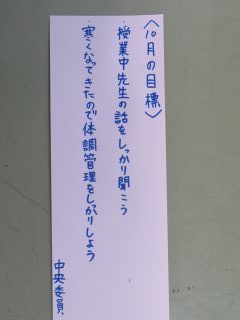 〈10月の目標〉
・授業中先生の話をしっかり聞こう
・寒くなってきたので体調管理をしっかりしよう
中央委員